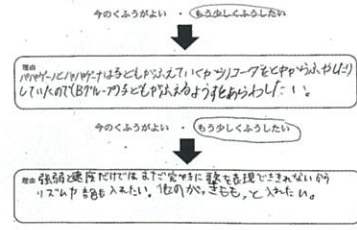 今のくふうがよい ・ もう少しくふうしたい
理由
パパゲーノとパパゲーナは子どもがふえていく
していたので(Bグループ)子どもがふえるようすをあらわしたい。
今のくふうがよい ・ もう少しくふうしたい
理由 強弱と速度だけではまだ完ぺきに歌を表現でききれないから
リズムや音色も入れたい。他のがっきももっと入れたい。